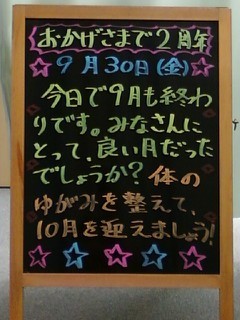 おかげさまで2周年
9月30日(金)
今日で9月も終わ
りです。みなさんに
とって、良い月だった
でしょうか?体の
ゆがみを整えて、
10月を迎えましょう!